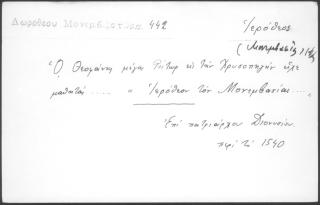 Δωροθέου Μονεμβασίας 442
Ἱερόθεος
(Μονεμβασίας)
"Ὁ Θεοφάνης μέγας Ῥήτωρ εἰς τὴν Χρυσοπηγὴν εἶχε
μαθητάς ..... " Ἱερόθεον τὸν Μονεμβασίας ... "
Ἐπὶ πατριάρχου Διονυσίου
περὶ τὸ 1540